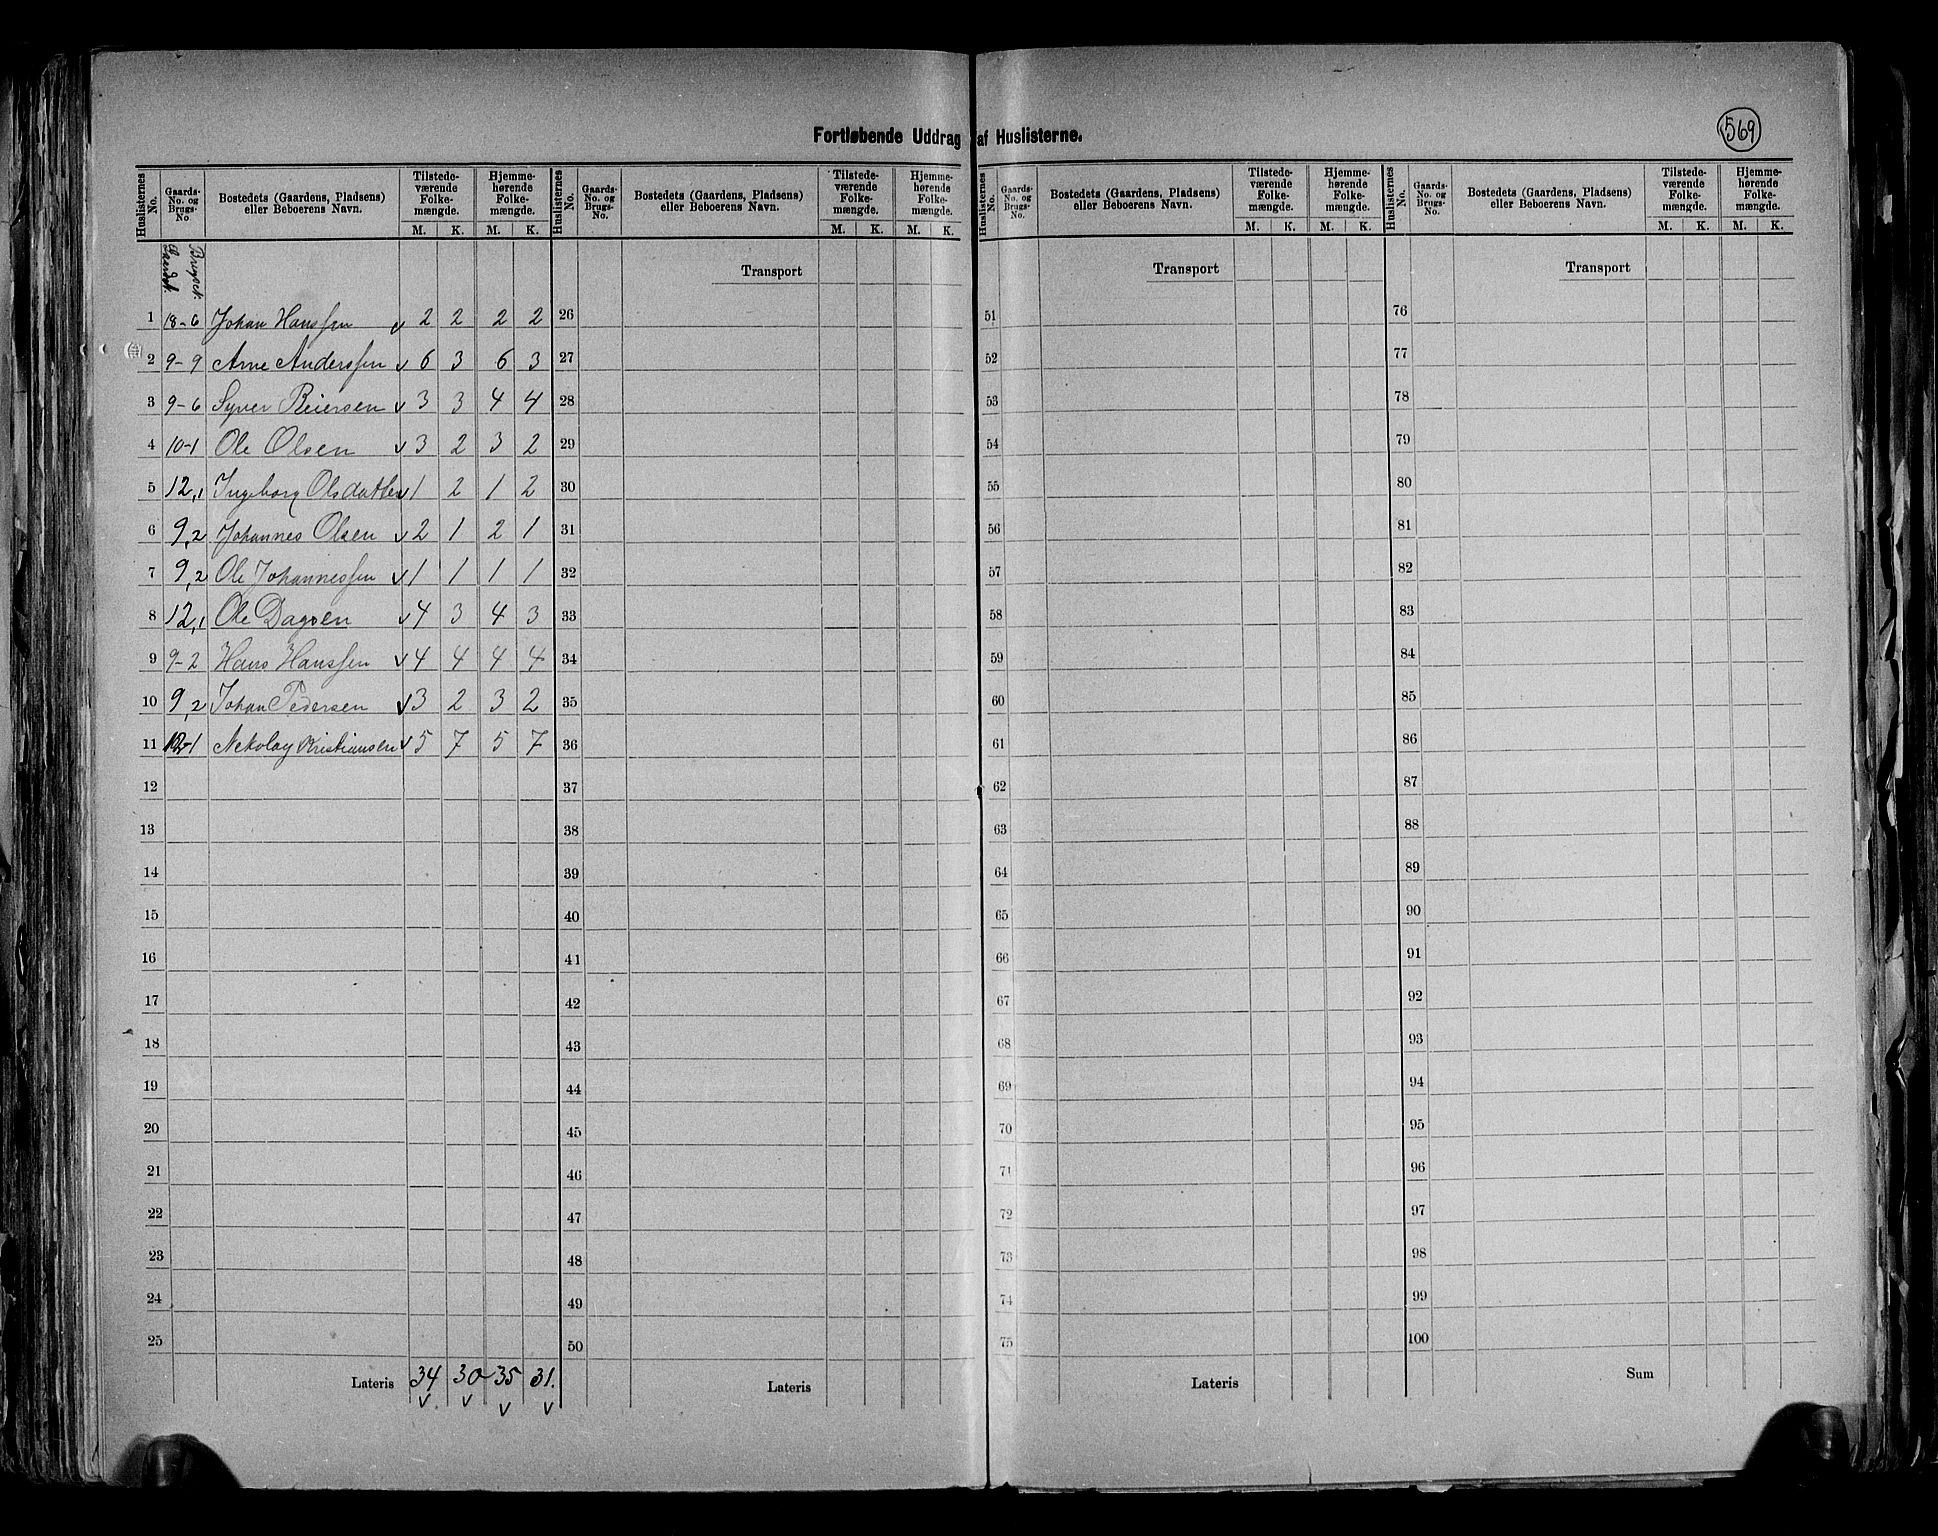 Fortløbende Uddrag af Huslisterne.
569
Huslisternes No. Gaards-No. og Brugs-No Bostedets (Gaardens, Pladsens) eller Beboerens Navn. Tilstedeværende Folkemængde. M. K. Hjemmehørende Folkemængde. M. K.
Huslisternes No. Gaards-No. og Brugs-No. Bostedets (Gaardens, Pladsens) eller Beboerens Navn. Tilstedeværende Folkemængde. M. K. Hjemmehørende Folkemængde. M. K.
Huslisternes No. Gaards-No. og Brugs-No. Bostedets (Gaardens, Pladsens) eller Beboerens Navn. Tilstedeværende Folkemængde. M. K. Hjemmehørende Folkemængde. M. K.
Huslisternes No. Gaards-No. og Brugs-No. Bostedets (Gaardens, Pladsens) eller Beboerens Navn. Tilstedeværende Folkemængde. M. K. Hjemmehørende Folkemængde. M. K.
Transport Transport Transport
1 18-6 Johan Hanssen v 2 2 2 2 26 51 76
2 9-9 Arne Anderssen v 6 3 6 3 27 52 77
3 9-6 Syver Reiersen v 3 3 4 4 28 53 78
4 10-1 Ole Olsen v 3 2 3 2 29 54 79
5 12,1 Ingeborg Olsdatter v 1 2 1 2 30 55 80
6 9,2 Johannes Olsen v 2 1 2 1 31 56 81
7 9,2 Ole Johannessen v 1 1 1 1 32 57 82
8 12,1 Ole Dagsen v 4 3 4 3 33 58 83
9 9-2 Hans Hanssen v 4 4 4 4 34 59 84
10 9,2 Johan Pedersen v 3 2 3 2 35 60 85
11 12-1 Nekolay Kristiansen v 5 7 5 7 36 61 86
12 37 62 87
13 38 63 88
14 39 64 89
15 40 65 90
16 41 66 91
17 42 67 92
18 43 68 93
19 44 69 94
20 45 70 95
21 46 71 96
22 47 72 97
23 48 73 98
24 49 74 99
25 50 75 100
Lateris 34 30 35 31. Lateris Lateris Sum
v v v v